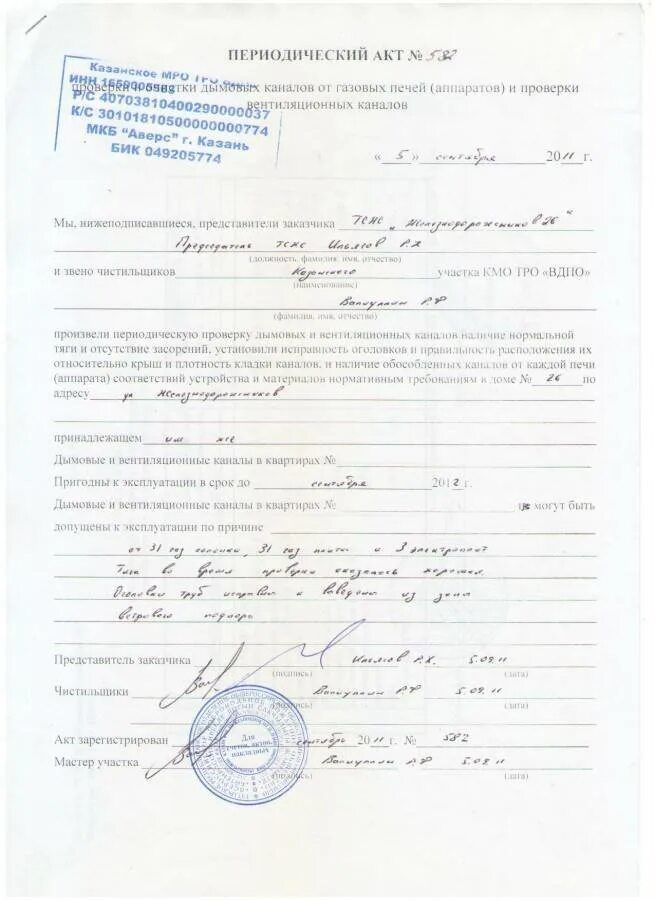 ПЕРИОДИЧЕСКИЙ АКТ № 582
Казанское МРО ТРО
ИНН
Р/С 40703810400290000037
К/С 30101810500000000774
МКБ "Аверс" г. Казань
БИК 049205774
проверки и чистки дымовых каналов от газовых печей (аппаратов) и проверки
вентиляционных каналов
« 5 » сентября 2011 г.
Мы, нижеподписавшиеся, представители заказчика ТСЖ „Железнодорожников 26"
Председатель ТСЖ Ильясов Р.Х
(должность, фамилия, имя, отчество)
и звено чистильщиков Казанского участка КМО ТРО «ВДПО»
(наименование)
Р.Ф
(фамилия, имя, отчество)
произвели периодическую проверку дымовых и вентиляционных каналов наличие нормальной
тяги и отсутствие засорений, установили исправность оголовков и правильность расположения их
относительно крыш и плотность кладки каналов, и наличие обособленных каналов от каждой печи
(аппарата) соответствий устройства и материалов нормативным требованиям в доме № 26 по
адресу ул Железнодорожников
принадлежащем им же
Дымовые и вентиляционные каналы в квартирах №
Пригодны к эксплуатации в срок до сентября 2012 г.
Дымовые и вентиляционные каналы в квартирах № могут быть
допущены к эксплуатации по причине
от 31 газ колонки, 31 газ плиты и 3 электроплит
Тяга во время проверки оказалась хорошая.
Оголовки труб исправны и выведены из зоны
ветрового подпора
Представитель заказчика Ильясов Р.Х. 5.09.11
(подпись) (дата)
Чистильщики Р.Ф 5.09.11
(подпись) (дата)
Акт зарегистрирован сентябрь 2011 г. № 582
Мастер участка Р.Ф 5.09.11
(подпись) (дата)
Для
счетов, актов,
накладных